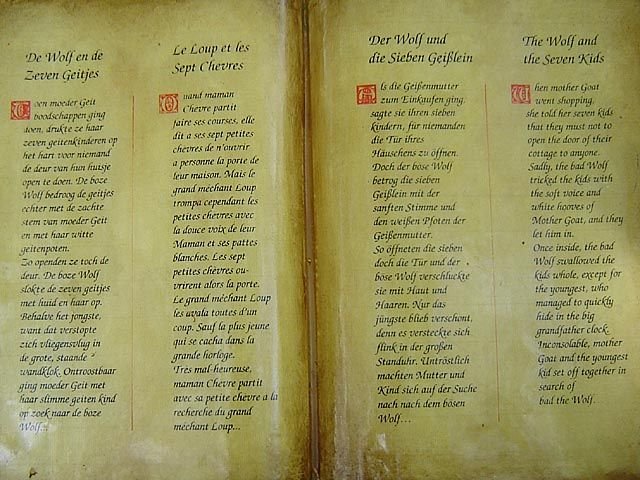 De Wolf en de
Zeven Geitjes
Toen moeder Geit
boodschappen ging
doen, drukte ze haar
zeven geitenkinderen op
het hart voor niemand
de deur van hun huisje
open te doen. De boze
Wolf bedroog de geitjes
echter met de zachte
stem van moeder Geit
en met haar witte
geitenpoten.
Zo openden ze toch de
deur. De boze Wolf
slokte de zeven geitjes
met huid en haar op.
Behalve het jongste,
want dat verstopte
zich vliegensvlug in
de grote, staande
wandklok. Ontroostbaar
ging moeder Geit met
haar slimme geiten kind
op zoek naar de boze
Wolf...
Le Loup et les
Sept Chevres
Quand maman
Chevre partit
faire ses courses, elle
dit a ses sept petites
chevres de n'ouvrir
a personne la porte de
leur maison. Mais le
grand méchant Loup
trompa cependant les
petites chevres avec
la douce voix de leur
Maman et ses pattes
blanches. Les sept
petites chèvres ou-
vrirent alors la porte.
Le grand méchant Loup
les avala toutes d'un
coup. Sauf la plus jeune
qui se cacha dans la
grande horloge.
Très mal-heureuse,
maman Chevre partit
avec sa petite chevre a la
recherche du grand
méchant Loup...
Der Wolf und
die Sieben Geißlein
Als die Geißenmutter
zum Einkaufen ging,
sagte sie ihren sieben
kindern, für niemanden
die Tür ihres
Häuschens zu öffnen.
Doch der böse Wolf
betrog die sieben
Geißlein mit der
sanften Stimme und
den weißen Pfoten der
Geißenmutter.
So öffneten die sieben
doch die Tür und der
böse Wolf verschluckte
sie mit Haut und
Haaren. Nur das
jüngste blieb verschont,
denn es versteckte sich
flink in der großen
Standuhr. Untröstlich
machten Mutter und
Kind sich auf der Suche
nach nach dem bösen
Wolf...
The Wolf and
the Seven Kids
When mother Goat
went shopping,
she told her seven kids
that they must not to
open the door of their
cottage to anyone.
Sadly, the bad Wolf
tricked the kids with
the soft voice and
white hooves of
Mother Goat, and they
let him in.
Once inside, the bad
Wolf swallowed the
kids whole, except for
the youngest, who
managed to quickly
hide in the big
grandfather clock.
Inconsolable, mother
Goat and the youngest
kid set off together in
search of
bad the Wolf.